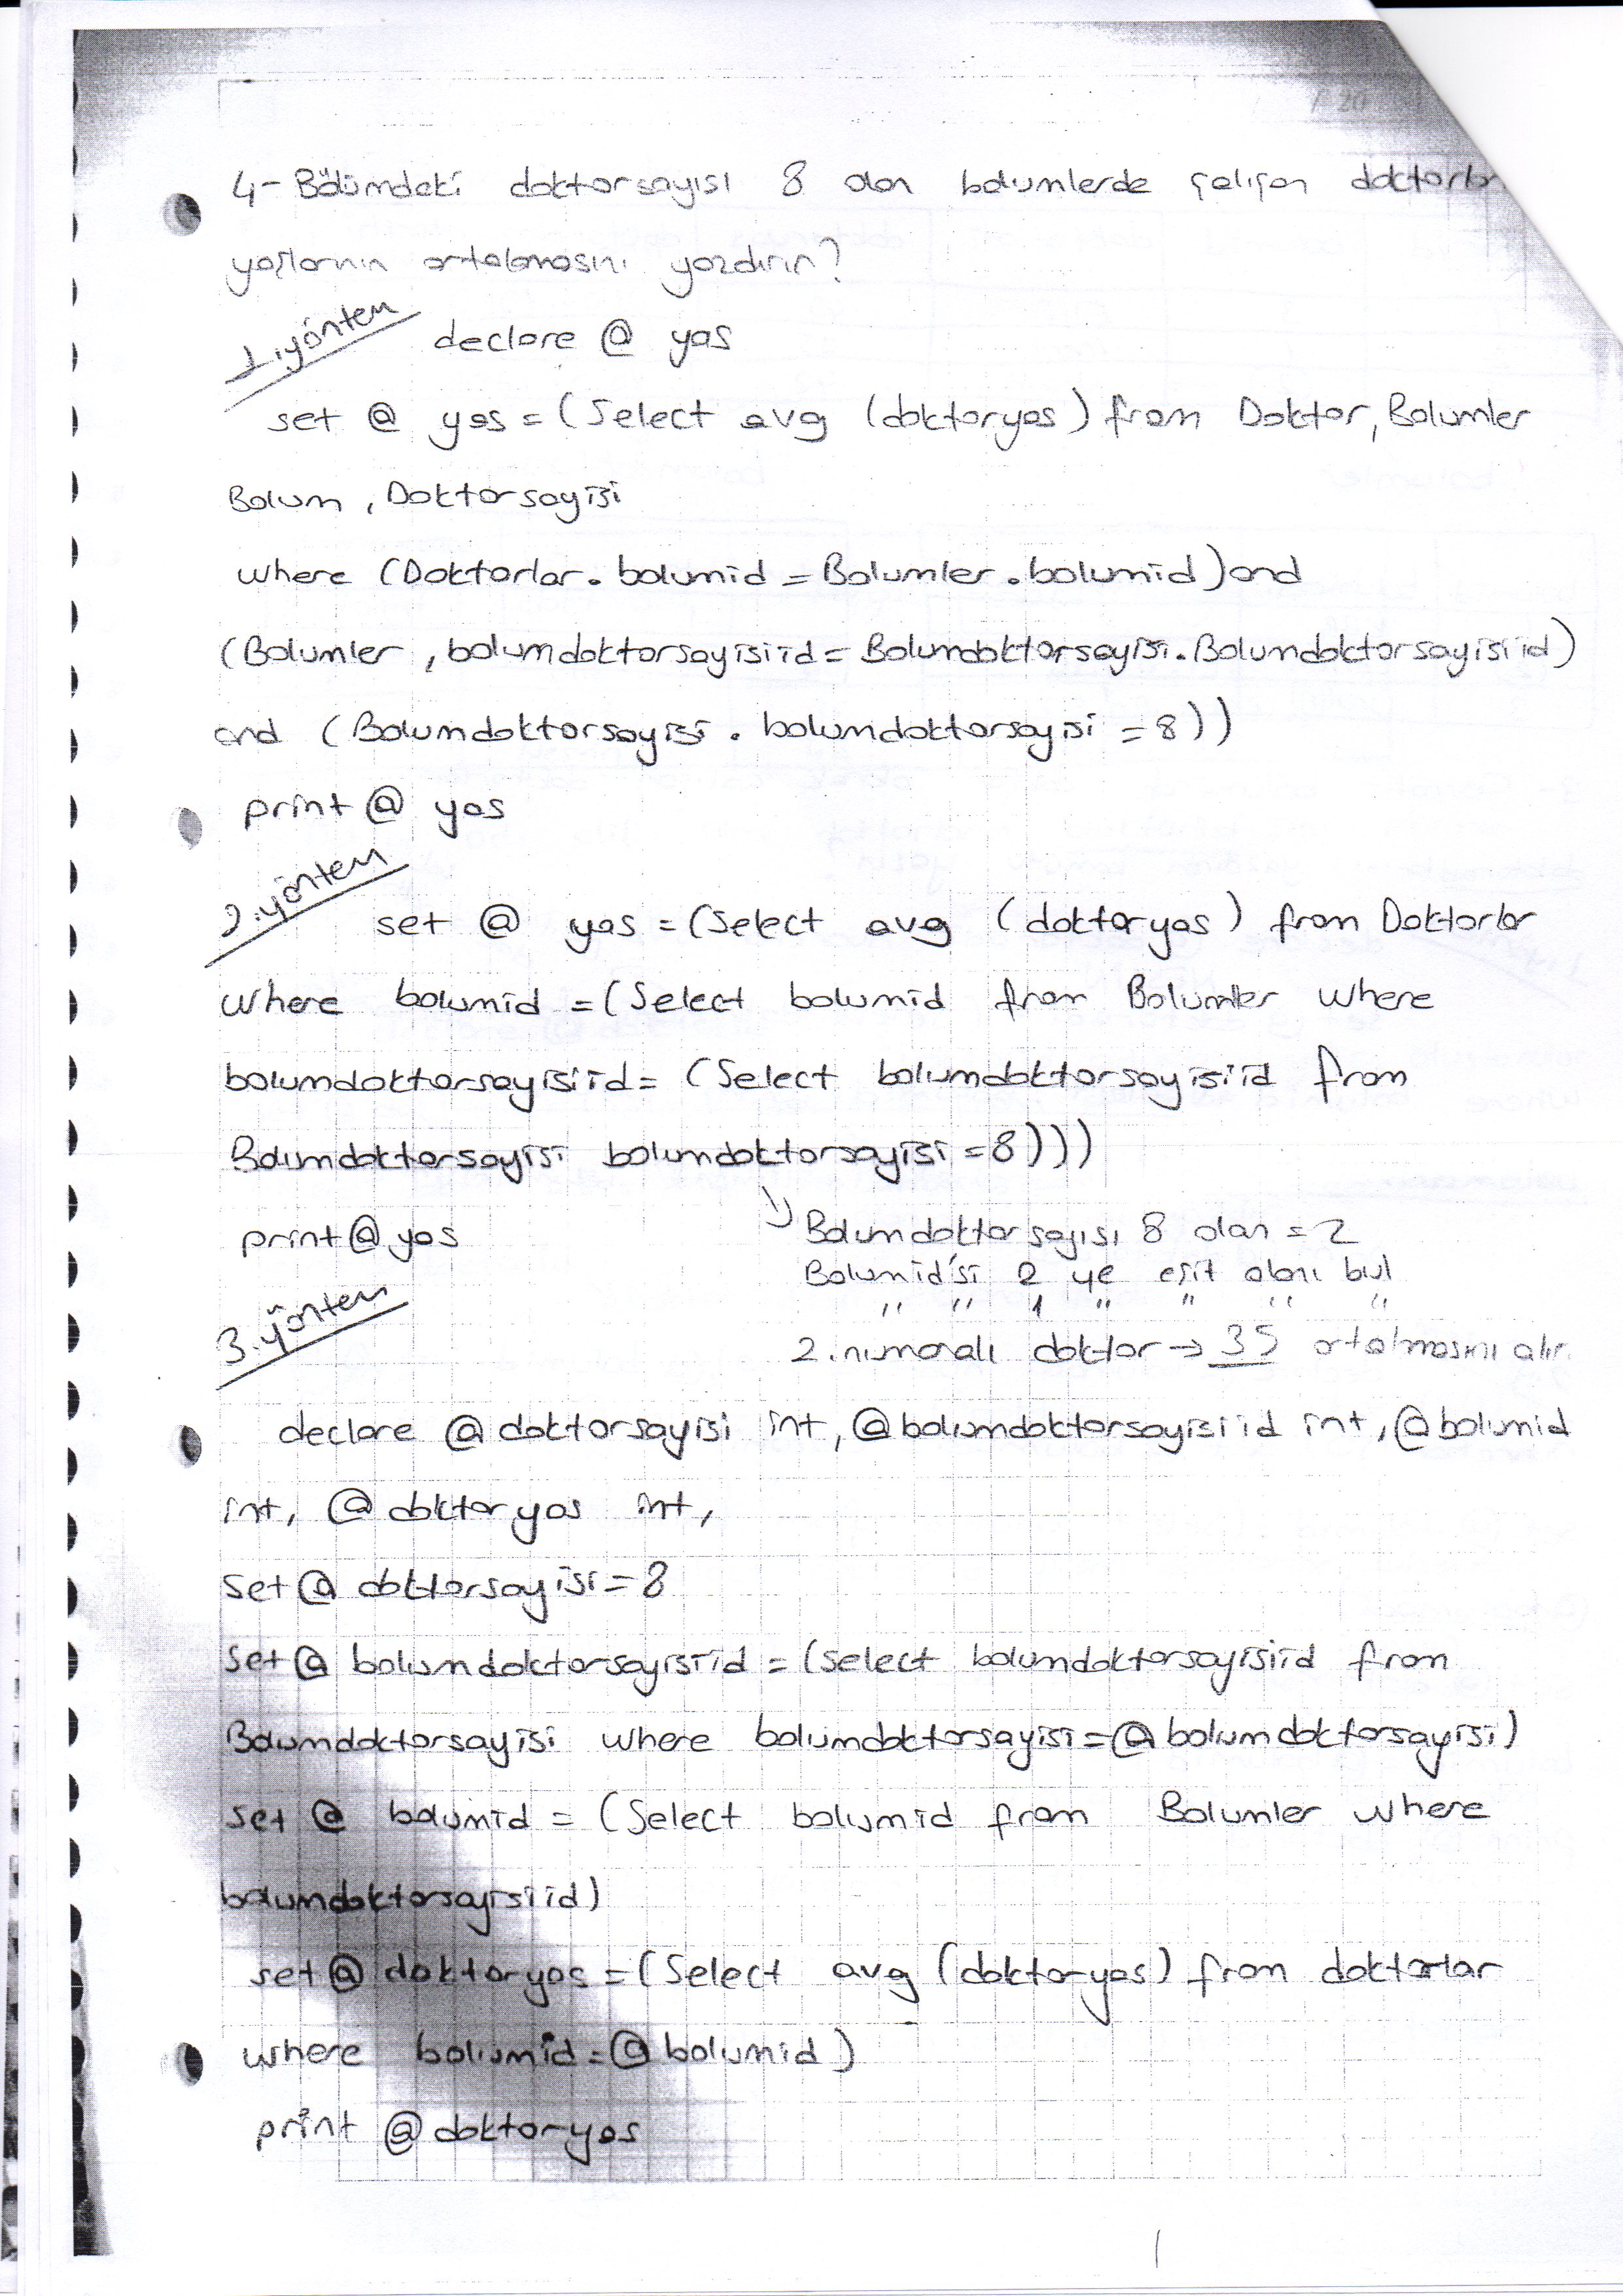 / 20
4- Bölümdeki doktorsayısı 8 olan bolumlerde çalışan doktorlar
yaşlarının ortalamasını yazdırın?
1.yöntem declare @ yas
set @ yas = (Select avg (doktoryas) from Doktor, Bolumler
Bolum, Doktorsayisi
where (Doktorlar. bolumid = Bolumler. bolumid) and
(Bolumler, bolumdoktorsayisiid = Bolumdoktorsayisi. Bolumdoktorsayisiid)
and (Bolumdoktorsayisi. bolumdoktorsayisi = 8))
print @ yas
2.yöntem set @ yas = (Select avg (doktoryas) from Doktorlar
where bolumid = (Select bolumid from Bolumler where
bolumdoktorsayisiid = (Select bolumdoktorsayisiid from
Bolumdoktorsayisi bolumdoktorsayisi = 8)))
print @ yas
Bolumdoktorsayısı 8 olan = 2
Bolumid'si 2 ye eşit olanı bul
" " 1 " " " "
2.numaralı doktor → 35 ortalmasını alır.
3.yöntem
declare @ doktorsayisi int, @ bolumdoktorsayisiid int, @ bolumid
int, @ doktoryas int,
set @ doktorsayisi = 8
set @ bolumdoktorsayisiid = (select bolumdoktorsayisiid from
Bolumdoktorsayisi where bolumdoktorsayisi = @ bolumdoktorsayisi)
set @ bolumid = (Select bolumid from Bolumler where
bolumdoktorsayisiid)
set @ doktoryas = (Select avg (doktoryas) from doktorlar
where bolumid = @ bolumid)
print @ doktoryas